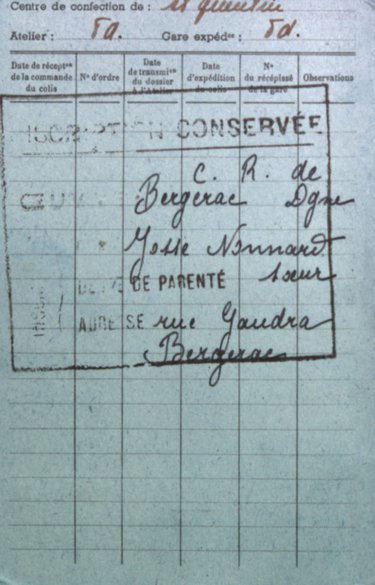 Centre de confection de : St Quentin
Atelier : 5a. Gare expédre : 5d.
Date de récepton de la commande du colis
N° d'ordre
Date de transmison du dossier à l'Atelier
Date d'expédition du colis
N° du récépissé de la gare
Observations
INSCRIPTION CONSERVÉE
C. R. de
ŒUV Bergerac Dgne
Nonnard
DEGRÉ DE PARENTÉ sœur
ADRESSE rue Gaudra
Bergerac